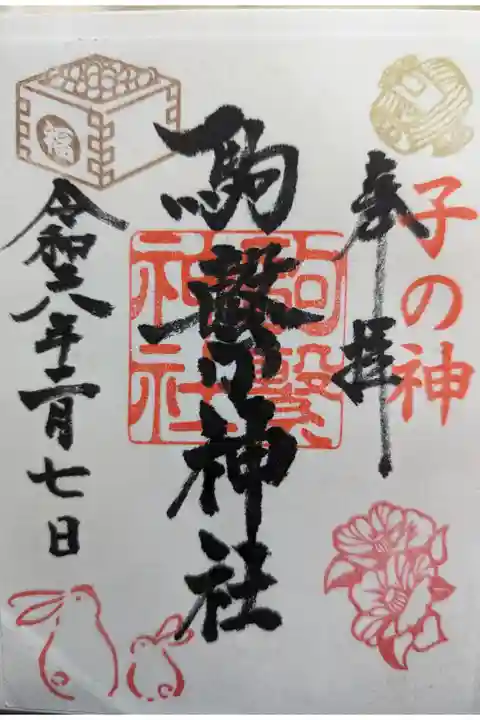 子の神
奉拝
駒繋神社
駒繋神社
令和八年二月七日
福